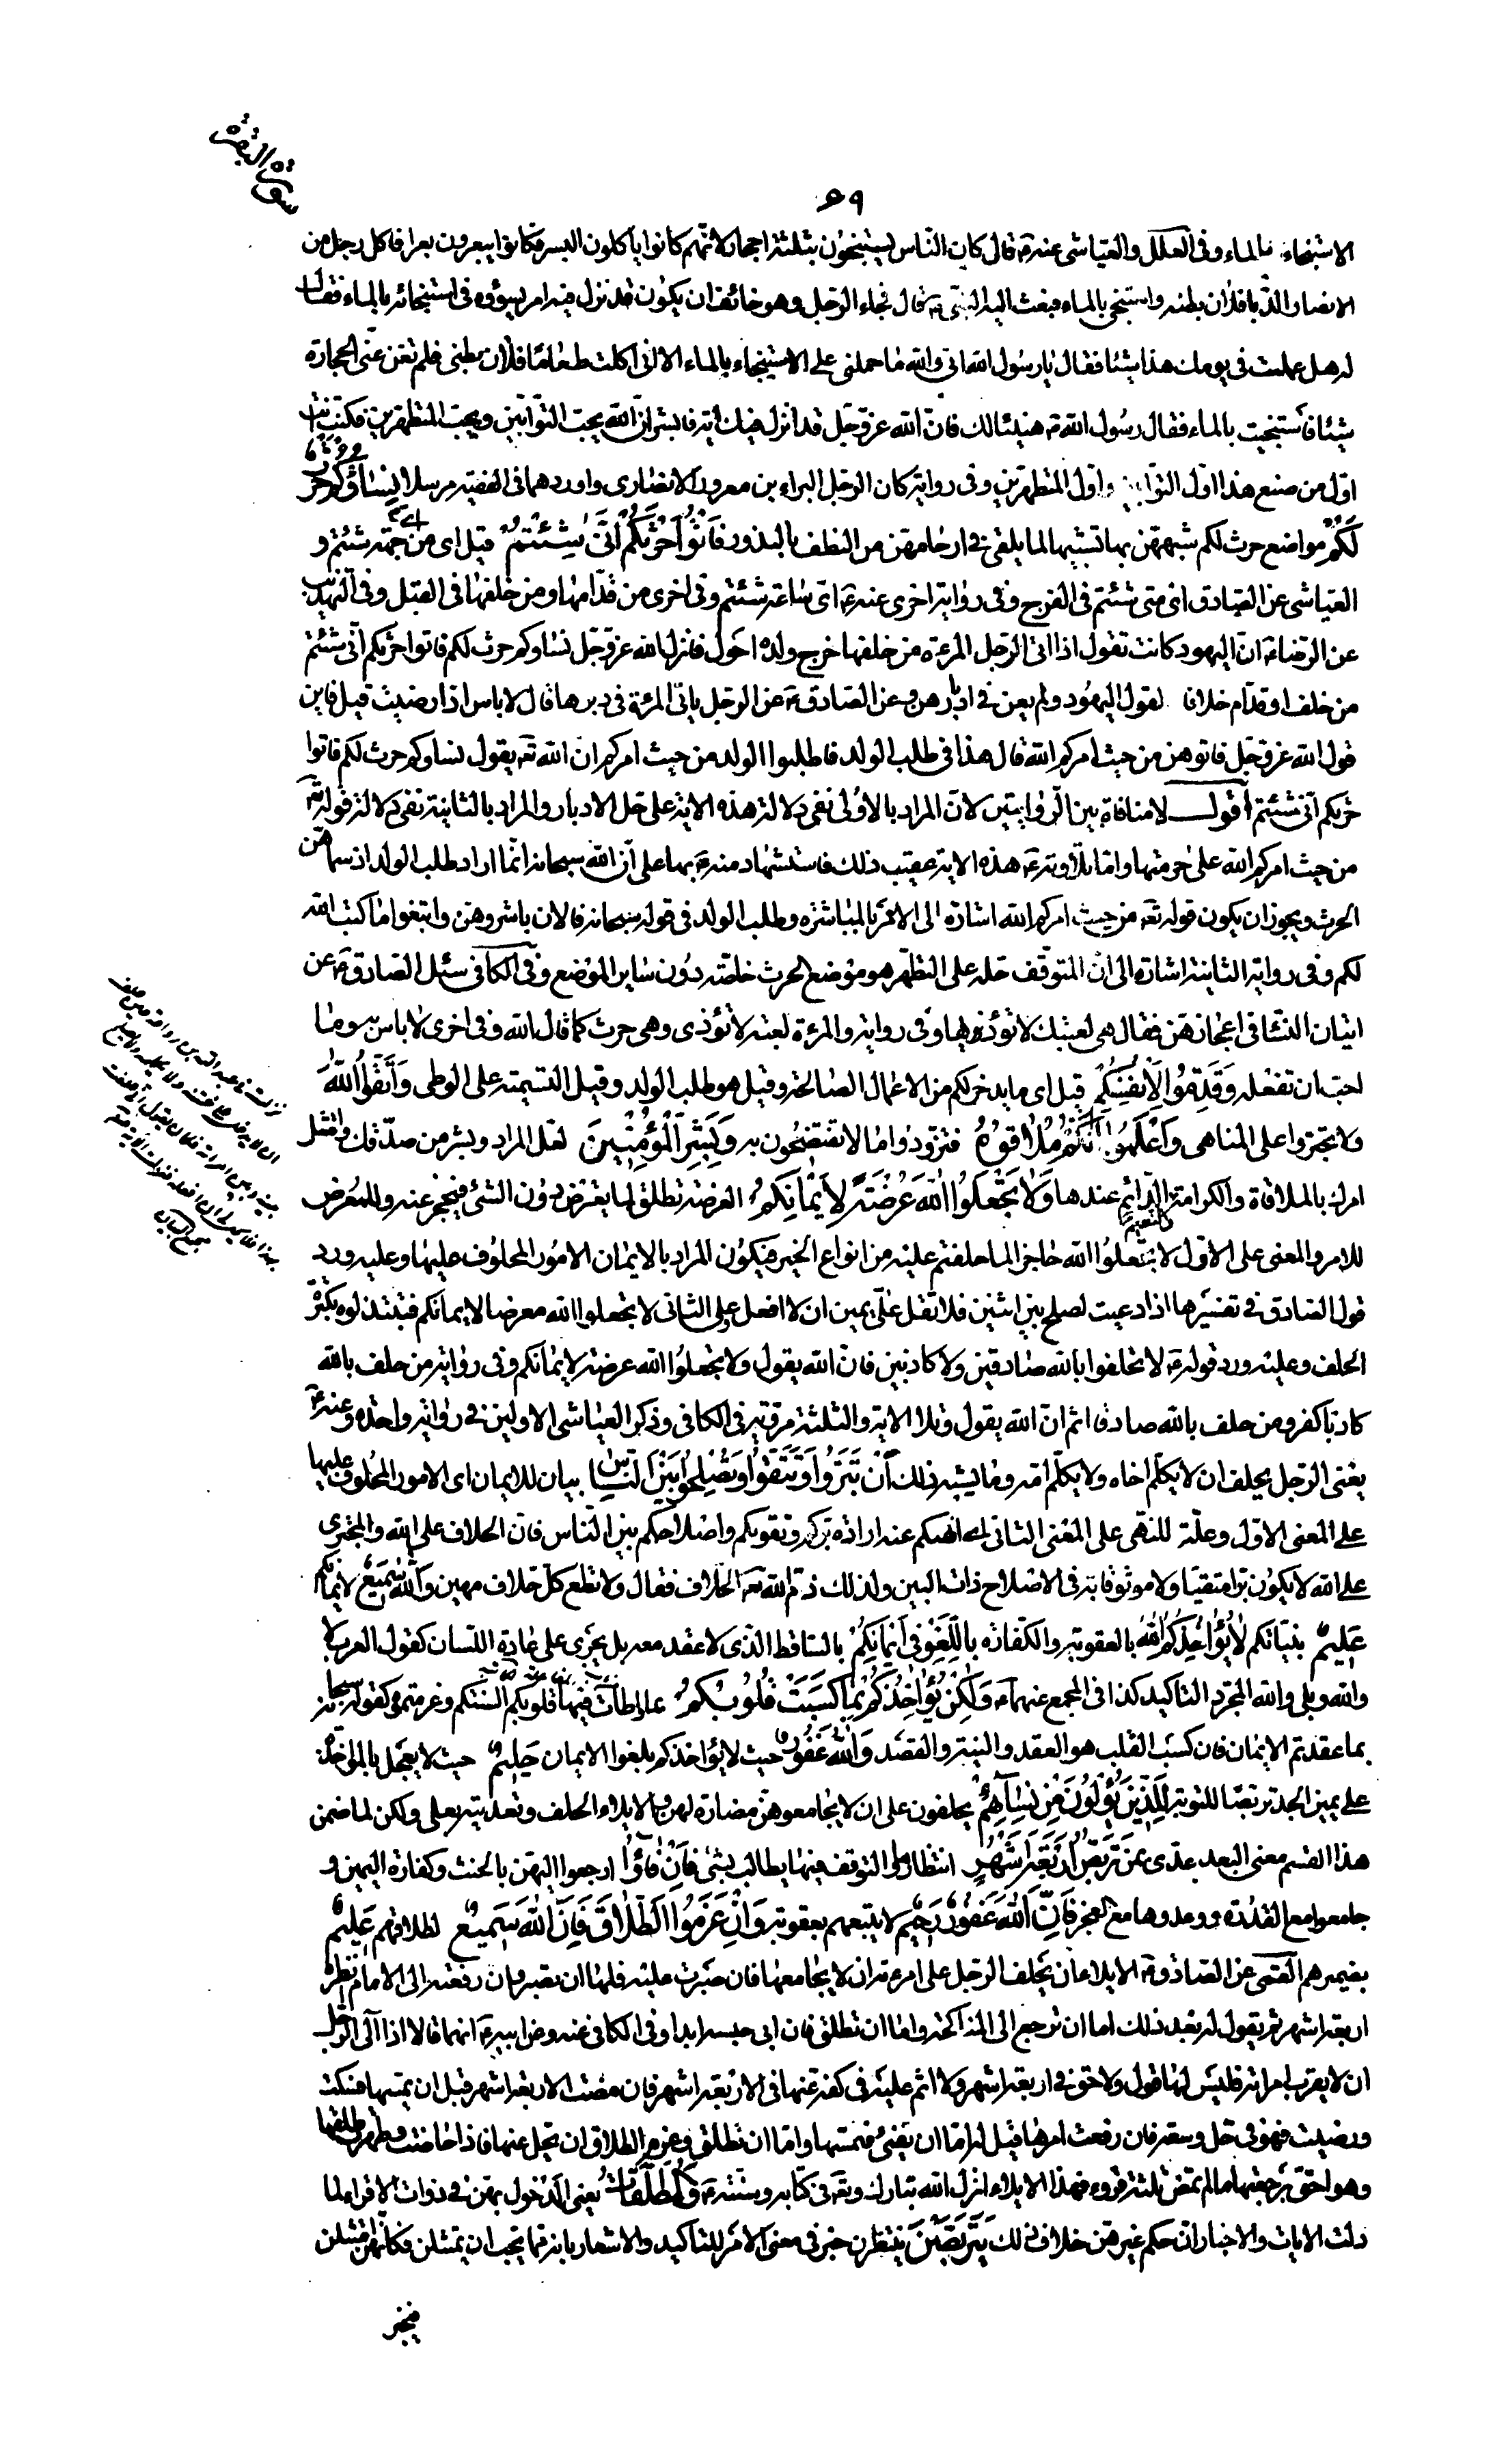 سورة البقرة
٦٩
الاستنجاء بالماء وفى العلل والعياشى عنه ع قال كان الناس يستنجون بثلثة احجار لانهم كانوا ياكلون البسر فكانوا يبعرون بعرا فاكل رجل من
الانصار الدبا فلان بطنه واستنجى بالماء فبعث اليه النبى ص قال فجاء الرجل وهو خائف ان يكون قد نزل فيه امر يسوؤه فى استنجائه بالماء فقال
له هل عملت فى يومك هذا شيئا فقال يا رسول الله انى والله ما حملنى على الاستنجاء بالماء الا انى اكلت طعاما فلان بطنى فلم تغن عنى الحجارة
شيئا فاستنجيت بالماء فقال رسول الله ص هنيئا لك فان الله عز وجل قد انزل فيك اية فابشر ان الله يحب التوابين ويحب المتطهرين فكنت انت
اول من صنع هذا اول التوابين واول المتطهرين وفى رواية كان الرجل البراء بن معرور الانصارى واوردهما فى الفقيه مرسلا نِساؤُكُمْ حَرْثٌ
لَكُمْ مواضع حرث لكم شبههن بها تشبيها لما يلقى فى ارحامهن من النطف بالبذور فَأْتُوا حَرْثَكُمْ أَنَّى شِئْتُمْ قيل اى من اى جهة شئتم و
العياشى عن الصادق اى متى شئتم فى الفرج وفى رواية اخرى عنه ع اى ساعة شئتم وفى اخرى من قدامها ومن خلفها فى القبل وفى التهذيب
عن الرضا ع ان اليهود كانت تقول اذا اتى الرجل المرءة من خلفها خرج ولده احول فانزل الله عز وجل نساؤكم حرث لكم فاتوا حرثكم انى شئتم
من خلف او قدام خلافا لقول اليهود ولم يعن فى ادبارهن وعن الصادق ع عن الرجل ياتى المرئة فى دبرها قال لا باس اذا رضيت قيل فاين
قول الله عز وجل فاتوهن من حيث امركم الله قال هذا فى طلب الولد فاطلبوا الولد من حيث امركم ان الله تعه يقول نساؤكم حرث لكم فاتوا
حرثكم انى شئتم اقول لا منافاة بين الروايتين لان المراد بالاولى نفى دلالة هذه الاية على حل الادبار والمراد بالثانية نفى دلالة قوله تعه
من حيث امركم الله على حرمتها واما تلاوته ع هذه الاية عقيب ذلك فاستشهاد منه ع بها على ان الله سبحانه انما اراد طلب الولد اذ سماهن
الحرث ويجوز ان يكون قوله تعه من حيث امركم الله اشارة الى الامر بالمباشرة وطلب الولد فى قوله سبحانه فالان باشروهن وابتغوا ما كتب الله
لكم وفى رواية الثانية اشارة الى ان المتوقف حله على التطهر هو موضع الحرث خاصة دون ساير المواضع وفى الكافى سئل الصادق ع عن
اتيان النسا فى اعجازهن فقال هى لعبتك لا تؤذيها وفى رواية والمرءة لعبة لا تؤذى وهى حرث كما قال الله وفى اخرى لا باس به وما
احب ان تفعله وَقَدِّمُوا لِأَنْفُسِكُمْ قيل اى ما يدخر لكم من الاعمال الصالحة وقيل هو طلب الولد وقيل التسمية على الوطى وَاتَّقُوا اللَّهَ
ولا تجتروا على المناهى وَاعْلَمُوا أَنَّكُمْ مُلاقُوهُ فتزودوا ما لا تفتضحون به وَبَشِّرِ الْمُؤْمِنِينَ لعل المراد وبشر من صدقك وامتثل
امرك بالملاقاة والكرامة والنعيم الدائم عندها وَلا تَجْعَلُوا اللَّهَ عُرْضَةً لِأَيْمانِكُمْ العرضة تطلق لما يعترض دون الشئ فيحجز عنه وللمعرض
للامر والمعنى على الاول لا تجعلوا الله حاجزا لما حلفتم عليه من انواع الخير فيكون المراد بالايمان الامور المحلوف عليها وعليه ورد
قول الصادق فى تفسيرها اذا دعيت لصلح بين اثنين فلا تقل على يمين ان لا افعل وعلى الثانى لا تجعلوا الله معرضا لايمانكم فتبتذلوه بكثرة
الحلف وعليه ورد قوله ع لا تحلفوا بالله صادقين ولا كاذبين فان الله يقول ولا تجعلوا الله عرضة لايمانكم وفى رواية من حلف بالله
كاذبا كفر ومن حلف بالله صادقا اثم ان الله يقول وتلا الاية والثلثة مروية فى الكافى وذكر العياشى الاولين فى رواية واحدة وعنه ع
يعنى الرجل يحلف ان لا يكلم اخاه ولا يكلم امه وما يشبه ذلك أَنْ تَبَرُّوا وَتَتَّقُوا وَتُصْلِحُوا بَيْنَ النَّاسِ بيان للايمان اى الامور المحلوف عليها
على المعنى الاول وعلة للنهى على المعنى الثانى اى انهيكم عنه ارادة بركم وتقويكم واصلاحكم بين الناس فان الحلاف على الله والمجترى
على الله لا يكون برا متقيا ولا موثوقا به فى الاصلاح ذات البين ولذلك ذم الله تعه الحلاف فقال ولا تطع كل حلاف مهين وَاللَّهُ سَمِيعٌ لايمانكم
عَلِيمٌ بنياتكم لا يُؤاخِذُكُمُ اللَّهُ بالعقوبة والكفارة بِاللَّغْوِ فِي أَيْمانِكُمْ بالساقط الذى لا عقد معه بل يجرى على عادة اللسان كقول العرب لا
والله وبلى والله لمجرد التاكيد كذا فى المجمع عنهما ع وَلكِنْ يُؤاخِذُكُمْ بِما كَسَبَتْ قُلُوبُكُمْ بما واطات فيها قلوبكم السنتكم وعزمتموه كقوله سبحانه
بما عقدتم الايمان فان كسب القلب هو العقد والنية والقصد وَاللَّهُ غَفُورٌ حيث لا يؤاخذكم بلغو الايمان حَلِيمٌ حيث لا يعجل بالمؤاخذة
على يمين الجد تربصا للتوبة لِلَّذِينَ يُؤْلُونَ مِنْ نِسائِهِمْ يحلفون على ان لا يجامعوهن مضارة لهن والايلاء الحلف وتعديته بعلى ولكن لما ضمن
هذا القسم معنى البعد عدى بمن تَرَبُّصُ أَرْبَعَةِ أَشْهُرٍ انتظارها والتوقف فيها يطالب بشئ فَإِنْ فاؤُ ارجعوا اليهن بالحنث وكفارة اليمين و
جامعوا مع القدرة ووعدوها مع العجز فَإِنَّ اللَّهَ غَفُورٌ رَحِيمٌ لا يتبعهم بعقوبة وَإِنْ عَزَمُوا الطَّلاقَ فَإِنَّ اللَّهَ سَمِيعٌ لطلاقهم عَلِيمٌ
بضميرهم القمى عن الصادق ع الايلاء ان يحلف الرجل على امرءته ان لا يجامعها فان صبرت عليه فلها ان تصبر وان رفعته الى الامام انظره
اربعة اشهر ثم يقول له بعد ذلك اما ان ترجع الى المناكحة واما ان تطلق فان ابى حبسه ابدا وفى الكافى عنه وعن ابيه ع انهما قالا اذا الى الرجل
ان لا يقرب امراته فليس لها قول ولا حق فى اربعة اشهر ولا اثم عليه فى كفه عنها فى الاربعة اشهر فان مضت الاربعة اشهر قبل ان يمسها فسكتت
ورضيت فهو فى حل وسعة فان رفعت امرها قيل له اما ان يفئ فيمسها واما ان تطلق وعزم الطلاق ان يخل عنها فاذا حاضت وطهرت طلقها
وهو احق برجعتها ما لم تمض ثلثة قروء فهذا الايلاء انزل الله تبارك وتعه فى كتابه وسنته ع وَالْمُطَلَّقاتُ يعنى المدخول بهن فى ذوات الاقراء لما
دلت الايات والاخبار ان حكم غيرهن خلاف ذلك يَتَرَبَّصْنَ ينتظرن خبر فى معنى الامر للتاكيد والاشعار بانه مما يجب ان يمتثلن فكانهن امتثلن
فيخبر
نزلت فى عبد الله بن رواحة حين حلف
مجمع البيان